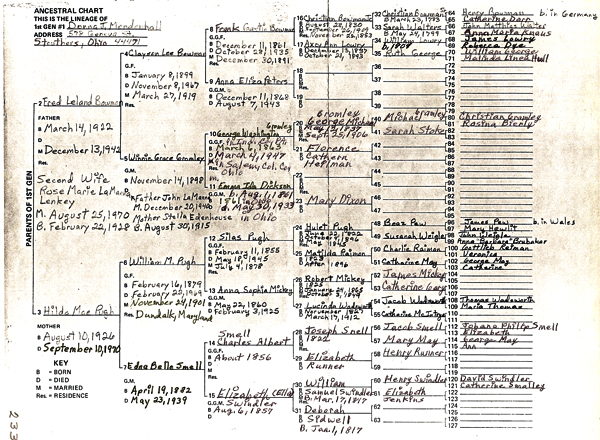 ANCESTRAL CHART
THIS IS THE LINEAGE OF
1st GEN #1 Donna J. Mendenhall
ADDRESS
Struthers, Ohio 44471
PARENTS OF 1ST GEN
2 Fred Leland Bowman
FATHER
B March 14, 1922
D December 13, 1942
Second Wife
Rose Marie LaManna
Lenkey
M. August 25, 1970
B. February 22, 1928
3 Hilda Mae Pugh
MOTHER
B August 10, 1926
D September 10, 1970
KEY
B = BORN
D = DIED
M = MARRIED
Res = RESIDENCE
4 Clayson Lee Bowman
G.F.
B January 8, 1899
D November 8, 1967
M March 27, 1919
Res.
5 Winnie Grace Gromley
G.M.
B November 14, 1898
D
Father John LaManna
Mother Stella Edenhouse
B. August 30, 1915
6 William M. Pugh
G.F.
B February 16, 1879
D February 22, 1969
M November 24, 1901
Res. Dundalk, Maryland
7 Edna Bella Smell
G.M.
B April 19, 1882
D May 23, 1939
8 Frank Curtis Bowman
G.G.F.
B December 11, 1861
D October 22, 1935
M December 30, 1891
Res.
9 Anna Eliza Peters
G.G.M.
B December 11, 1868
D August 7, 1943
10 George Washington Gromley
B March 6, 1863
D March 4, 1947
M in Salem, Col. Co.
Res. Ohio
11 Emma Ida Dickson
G.G.M.
B. Aug. 1, 1861
D. May 30, 1933
in Ohio
12 Silas Pugh
G.G.F.
B February 11, 1855
D May 18, 1945
M July 4, 1878
Res.
13 Anna Sophia Mickey
G.G.M.
B May 22, 1860
D February 3, 1925
Smell
14 Charles Albert
G.G.F.
B About 1856
D
M
Res.
15 Elizabeth (Ella)
G.G.M. Swindler
B Aug. 6, 1857
D
16 Christian Bowman
17 Amy Ann Lowry
18
19
20 Gromley
George Michael
B May 13, 1837
D Sept. 25, 1906
21 Florence
Cathern
Heflman
22
23 Mary Dixon
24 Hulet Pugh
25 Matilda Raiman
26 Robert Mickey
27 Lucinda Wadsworth
B November 1827
D March 17, 1912
28 Joseph Smell
29 Elizabeth
Runner
30 William
Samuel Swindler
B. Mar. 17, 1817
31 Deborah
Spdwell
B. Jan. 1, 1817
32 Christian Bowman
33 Sarah Walters
B May 24, 1799
34 William Lowry
35 Ruth George
36
37
38
39
40 Michael Gromley
41 Sarah Stoke
42
43
44
45
46
47
48 Beaz Paw
49 Susanah Weigle
50 Charlie Raiman
51 Catherine May
52 James Mickey
53 Catherine Gary
54 Jacob Wadsworth
55 Catherine McIntyre
56 Jacob Smell
57 Mary May
58 Henry Runner
59
60 Henry Swindler
61 Elizabeth
Jenkins
62
63
64 Henry Bowman b. in Germany
65 Catherine Darr
66 John Matthias Walter
67 Anna Maria Knaus
68 James Lowry
69 Rebecca Dye
70 William George
71 Malinda Linea Hull
72
73
74
75
76
77
78
79
80 Christian Gromley
81 Rosina Bierly
82
83
84
85
86
87
88
89
90
91
92
93
94
95
96 James Paw b. in Wales
97 Mary Hewlit
98 John Weigle
99 Anna "Barbara" Brubaker
100 Gottlieb Raiman
101 Veronica
102 George May
103 Catherine
104
105
106
107
108 Thomas Wadsworth
109 Maria Thomas
110
111
112 Johana Phillip Smell
113 Elizabeth
114 George May
115 Ann
116
117
118
119
120 David Swindler
121 Catherine Smalley
122
123
124
125
126
127
233